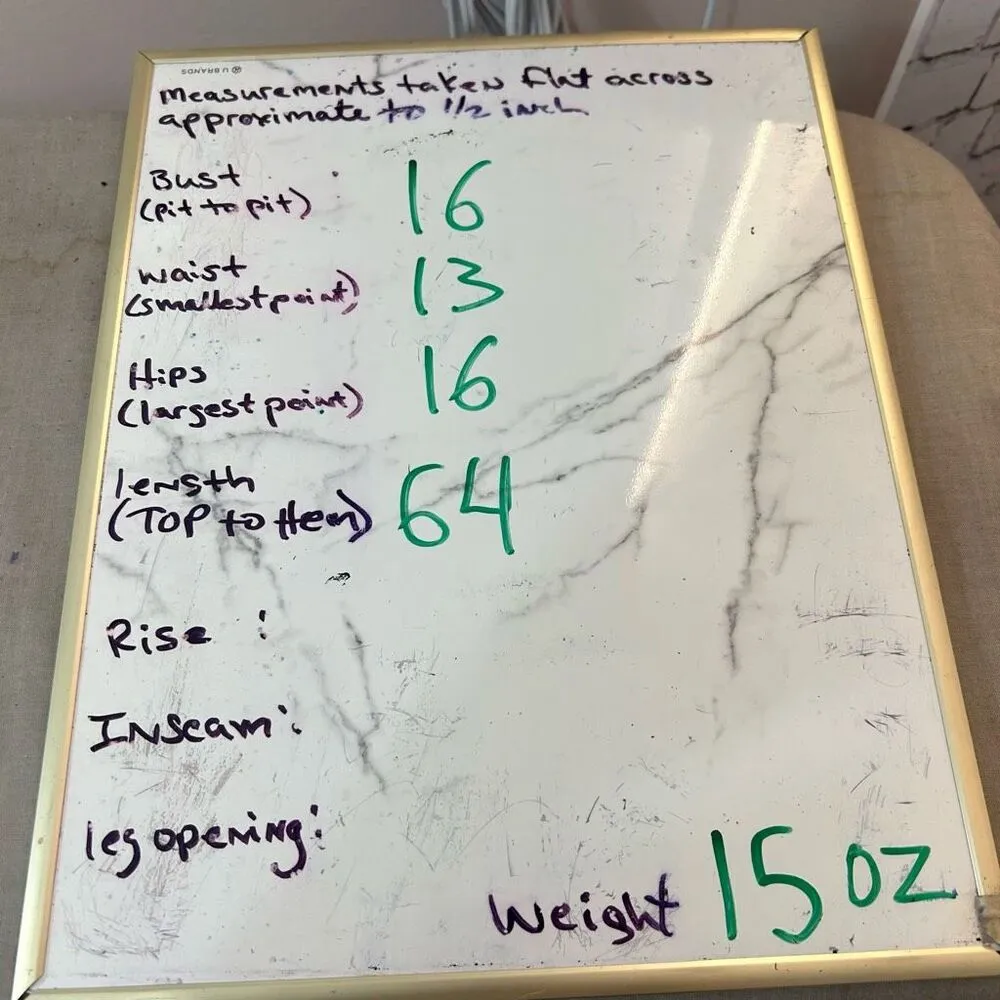 U BRANDS
Measurements taken flat across
approximate to 1/2 inch
Bust
(pit to pit) 16
waist
(smallest point) 13
Hips
(largest point) 16
length
(TOP to Hem) 64
Rise :
Inseam :
leg opening :
Weight 15 oz